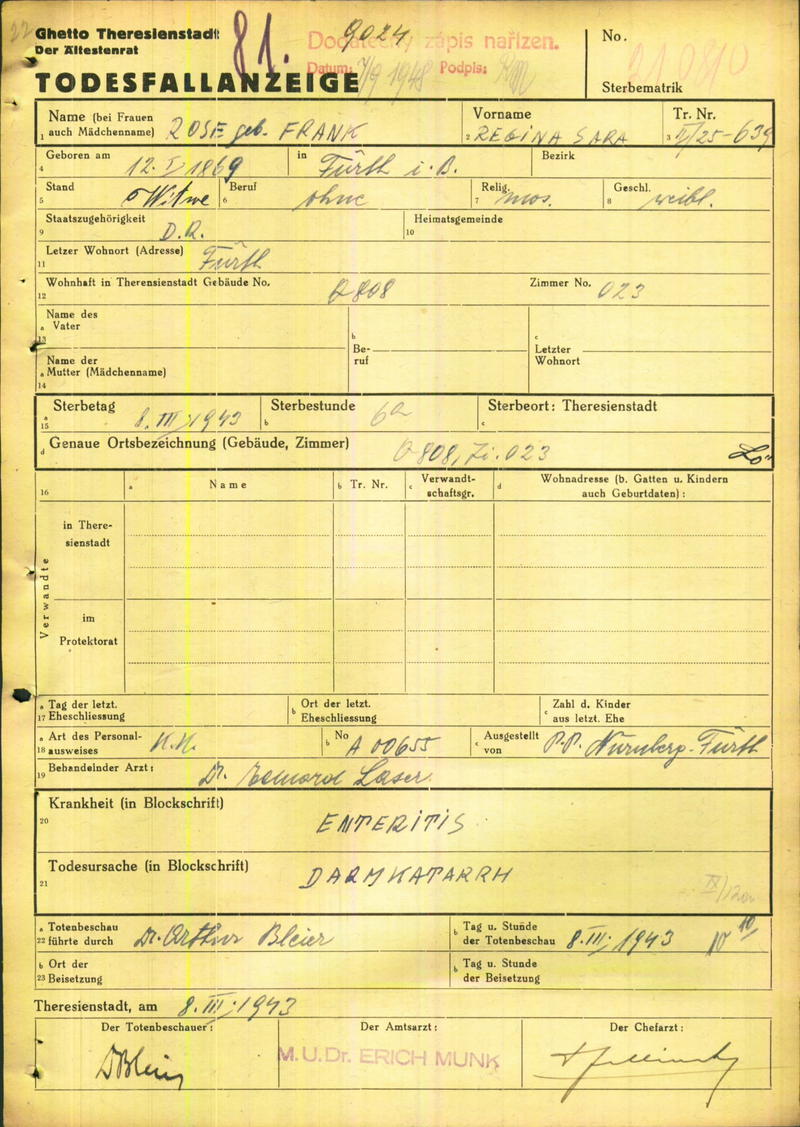 Ghetto Theresienstadt
Der Ältestenrat
81.
9024
Dodatečný zápis nařízen.
Datum: 7/9 1948 Podpis:
TODESFALLANZEIGE
No.
Sterbematrik
Name (bei Frauen
1 auch Mädchenname) ROSE geb. FRANK
Vorname
2 REGINA SARA
Tr. Nr.
3 II/25-639
Geboren am
4 12. I. 1869
in Fürth i. B.
Bezirk
Stand
5 Witwe
Beruf
6 ohne
Relig.
7 mos.
Geschl.
8 weibl.
Staatszugehörigkeit
9 D.R.
Heimatsgemeinde
10
Letzer Wohnort (Adresse)
11 Fürth
Wohnhaft in Theresienstadt Gebäude No.
12 Q 808
Zimmer No. 023
Name des
a Vater
13
Name der
a Mutter (Mädchenname)
14
b
Be-
ruf
c
Letzter
Wohnort
Sterbetag
a
15 8. III. 1943
Sterbestunde
b 6a
Sterbeort: Theresienstadt
c
Genaue Ortsbezeichnung (Gebäude, Zimmer)
d Q 808, Zi. 023
16
a Name
b Tr. Nr.
c Verwandt-
schaftsgr.
d Wohnadresse (b. Gatten u. Kindern
auch Geburtdaten) :
Verwandte
in There-
sienstadt
im
Protektorat
a Tag der letzt.
17 Eheschliessung
b Ort der letzt.
Eheschliessung
c Zahl d. Kinder
aus letzt. Ehe
a Art des Personal-
18 ausweises K.K.
b No A 00655
c Ausgestellt
von P.P. Nürnberg-Fürth
Behandelnder Arzt:
19 Dr. Laser
Krankheit (in Blockschrift)
20 ENTERITIS
Todesursache (in Blockschrift)
21 DARMKATARRH
a Totenbeschau
22 führte durch Dr. Arthur Bleier
b Tag u. Stunde
der Totenbeschau 8. III. 1943 10 10
b Ort der
23 Beisetzung
b Tag u. Stunde
der Beisetzung
Theresienstadt, am 8. III. 1943
Der Totenbeschauer:
Der Amtsarzt:
M.U.Dr. ERICH MUNK
Der Chefarzt: